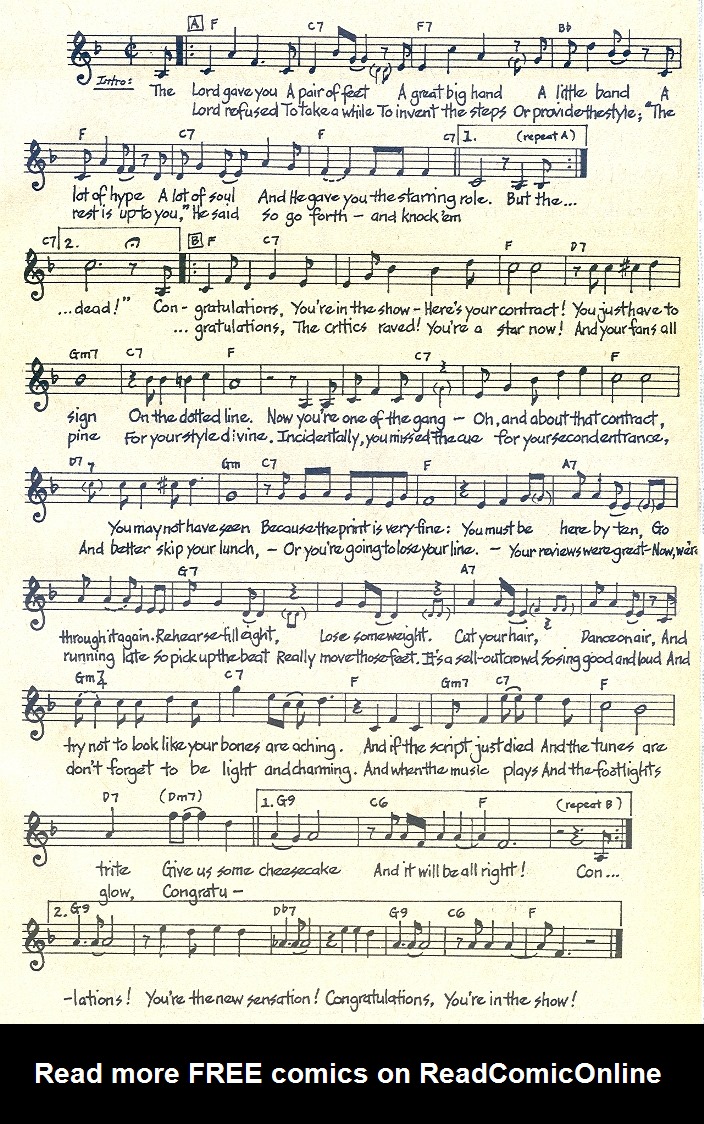 A F C7 F7 Bb
Intro: The Lord gave you A pair of feet A great big hand A little band A
Lord refused To take a while To invent the steps Or provide the style; "The
F C7 F C7 1. (repeat A)
lot of hype A lot of soul And He gave you the starring role. But the...
rest is up to you," He said So go forth – and knock 'em
C7 2. B F C7 F D7
...dead!" Con- gratulations, You're in the show – Here's your contract! You just have to
...gratulations, The critics raved! You're a star now! And your fans all
Gm7 C7 F C7 F
sign On the dotted line. Now you're one of the gang – Oh, and about that contract,
pine For your style divine. Incidentally, you missed the cue for your second entrance,
D7 Gm C7 F A7
You may not have seen Because the print is very fine: You must be here by ten, Go
And better skip your lunch, – Or you're going to lose your line. – Your reviews were great – Now, we're
G7 A7
through it again. Rehearse till eight, Lose some weight. Cut your hair, Dance on air, And
running late So pick up the beat Really move those feet. It's a sell-out crowd So sing good and loud And
Gm7 C7 F Gm7 C7 F
try not to look like your bones are aching. And if the script just died And the tunes are
don't forget to be light and charming. And when the music plays And the footlights
D7 (Dm7) 1. G9 C6 F (repeat B)
trite Give us some cheesecake And it will be all right! Con...
glow, Congratu –
2. G9 Db7 G9 C6 F
-lations! You're the new sensation! Congratulations, You're in the show!
Read more FREE comics on ReadComicOnline